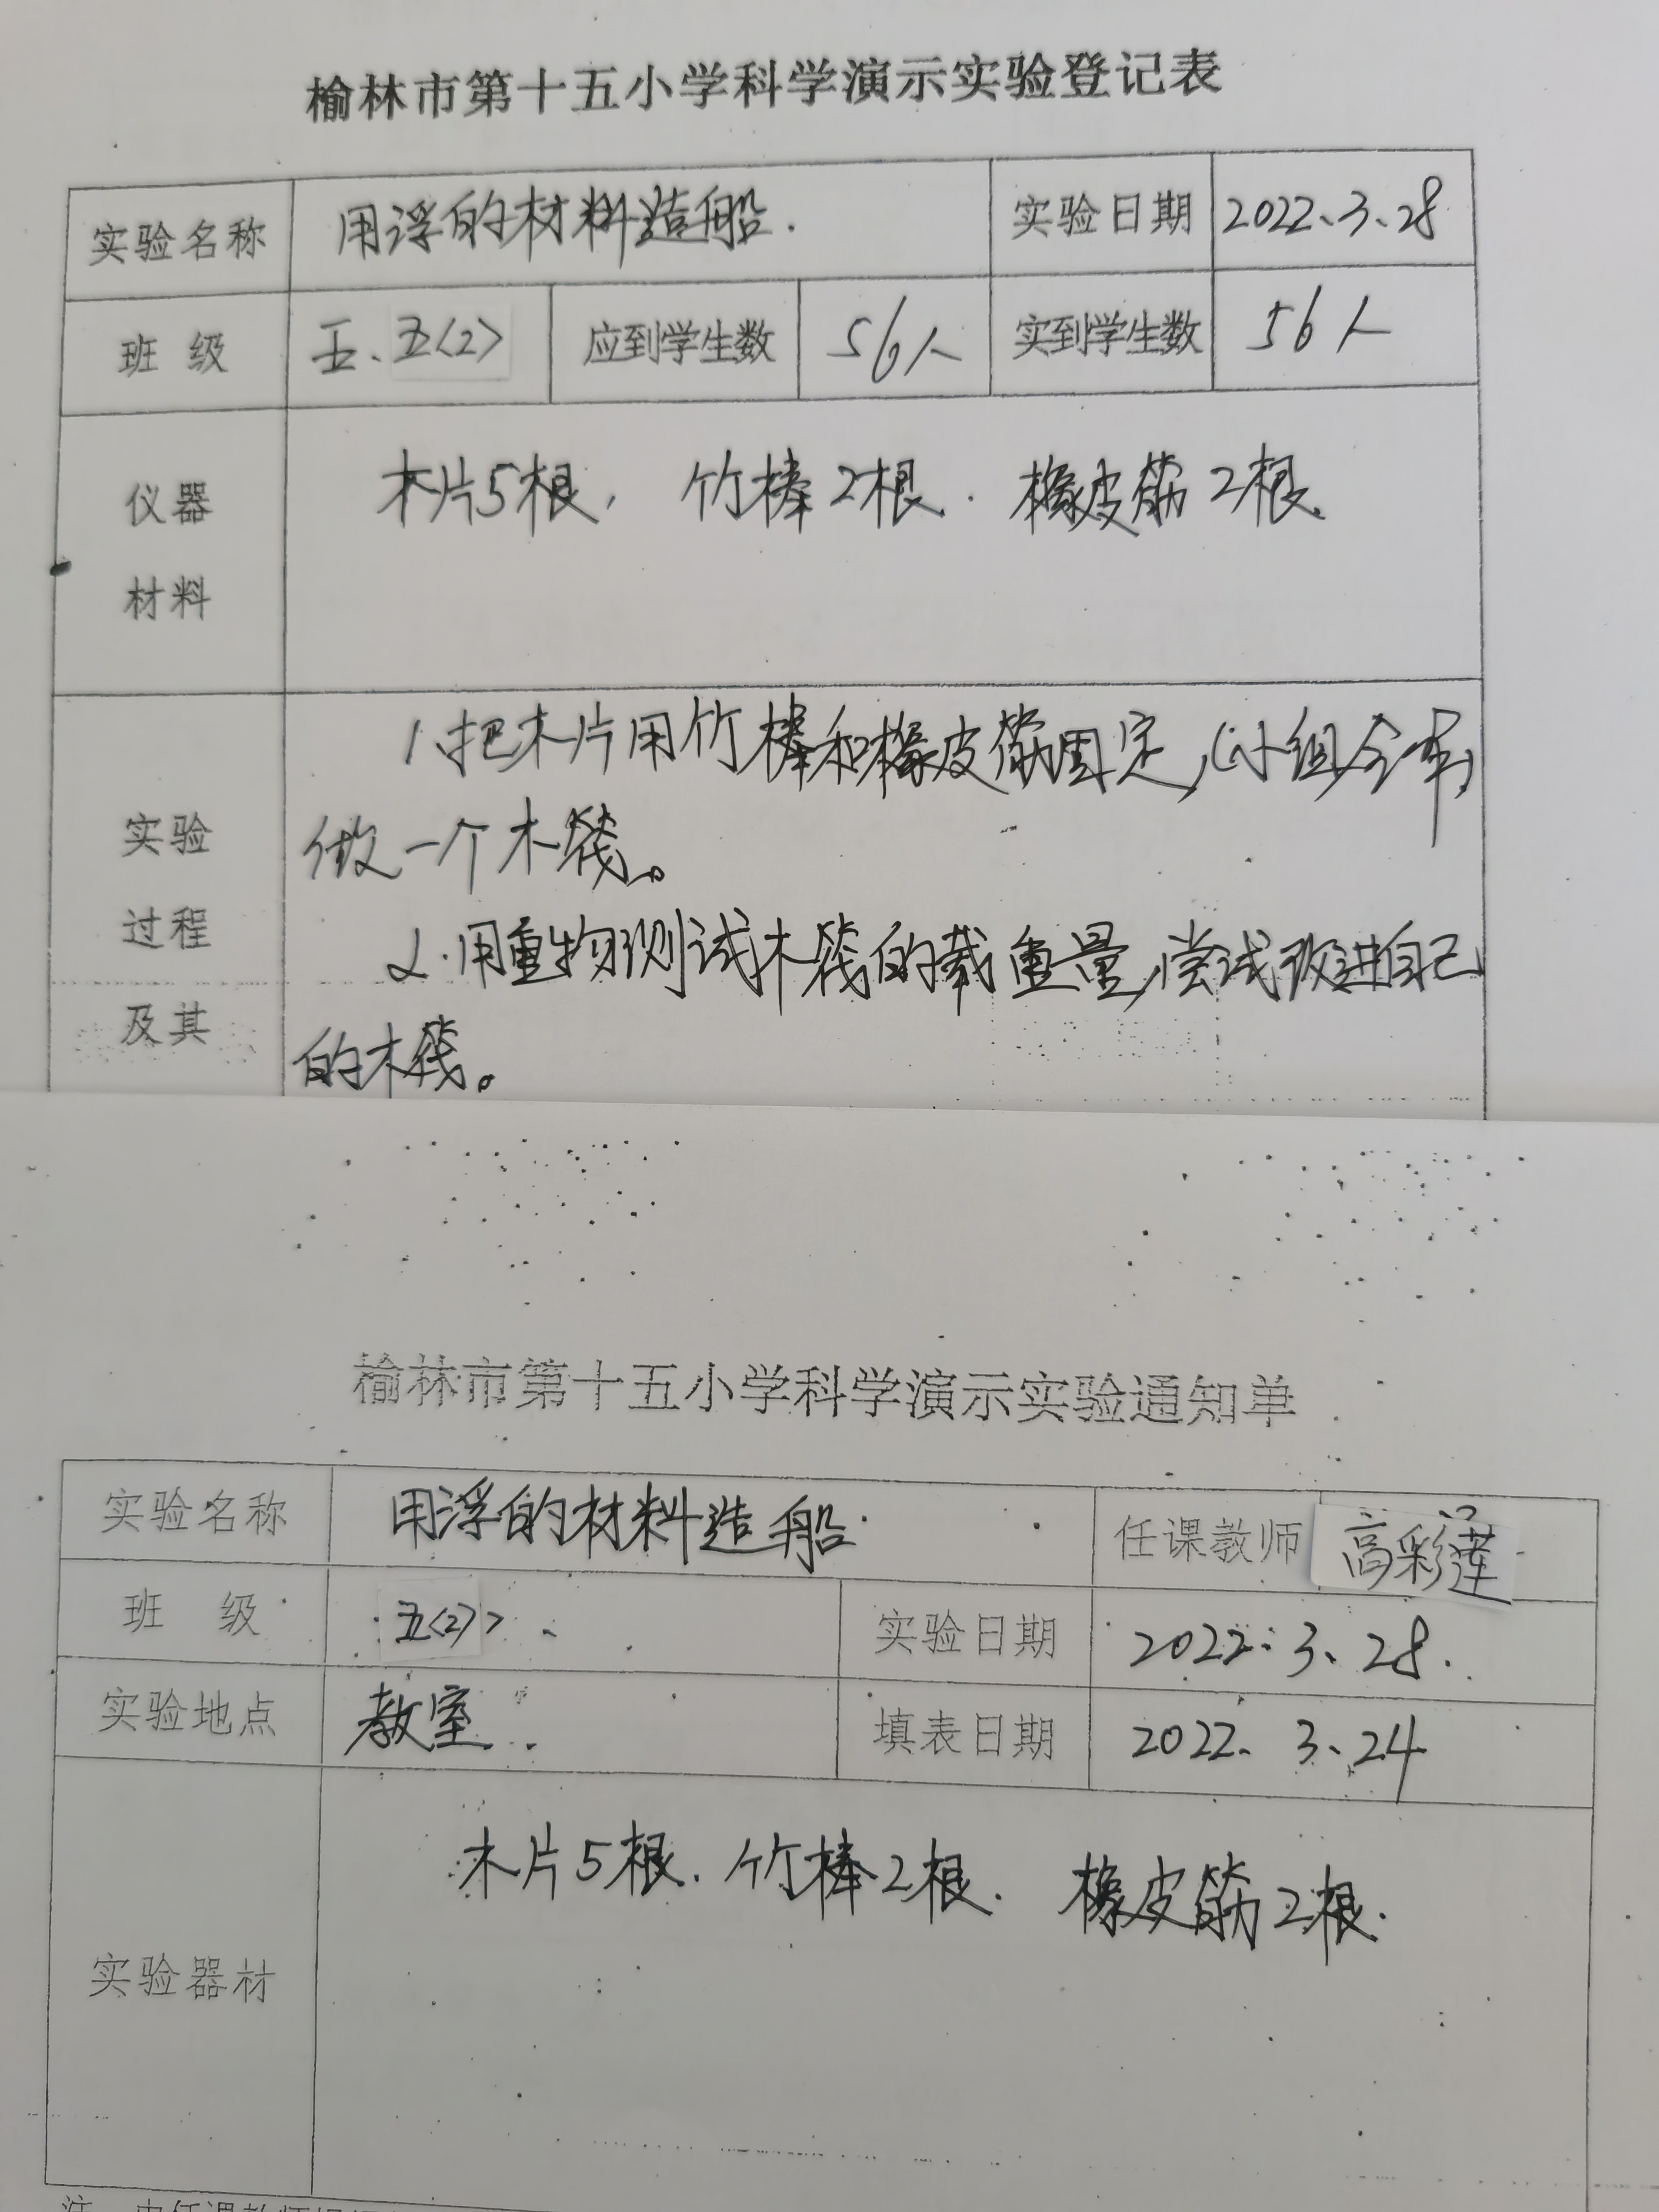 榆林市第十五小学科学演示实验登记表
实验名称 用浮的材料造船. 实验日期 2022、3、28
班 级 五、五<2> 应到学生数 56人 实到学生数 56人
仪器
材料
木片5根, 竹棒2根. 橡皮筋2根.
实验
过程
及其
1、把木片用竹棒和橡皮筋固定,(小组合率)
做一个木筏。
2.用重物测试木筏的载重量,尝试改进自己
的木筏。
榆林市第十五小学科学演示实验通知单
实验名称 用浮的材料造船. 任课教师 高彩莲
班 级 五<2>> 实验日期 2022.3、28.
实验地点 教室. 填表日期 2022、3、24
实验器材
木片5根. 竹棒2根. 橡皮筋2根.